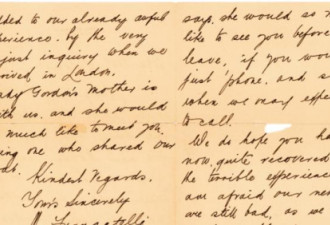 ded to our already awful
perience. by the very
just inquiry when we
rived in London.
dy Gordon's mother is
th us, and she would
much like to meet you
ing one who shared our
Kindest Regards.
Yours Sincerely
says, she would so
like to see you before
leave, if you wou
just 'phone, and s
when we may expe
to call.
We do hope you ha
now, quite recovered
the terrible experience
am afraid our ne
are still bad, as we